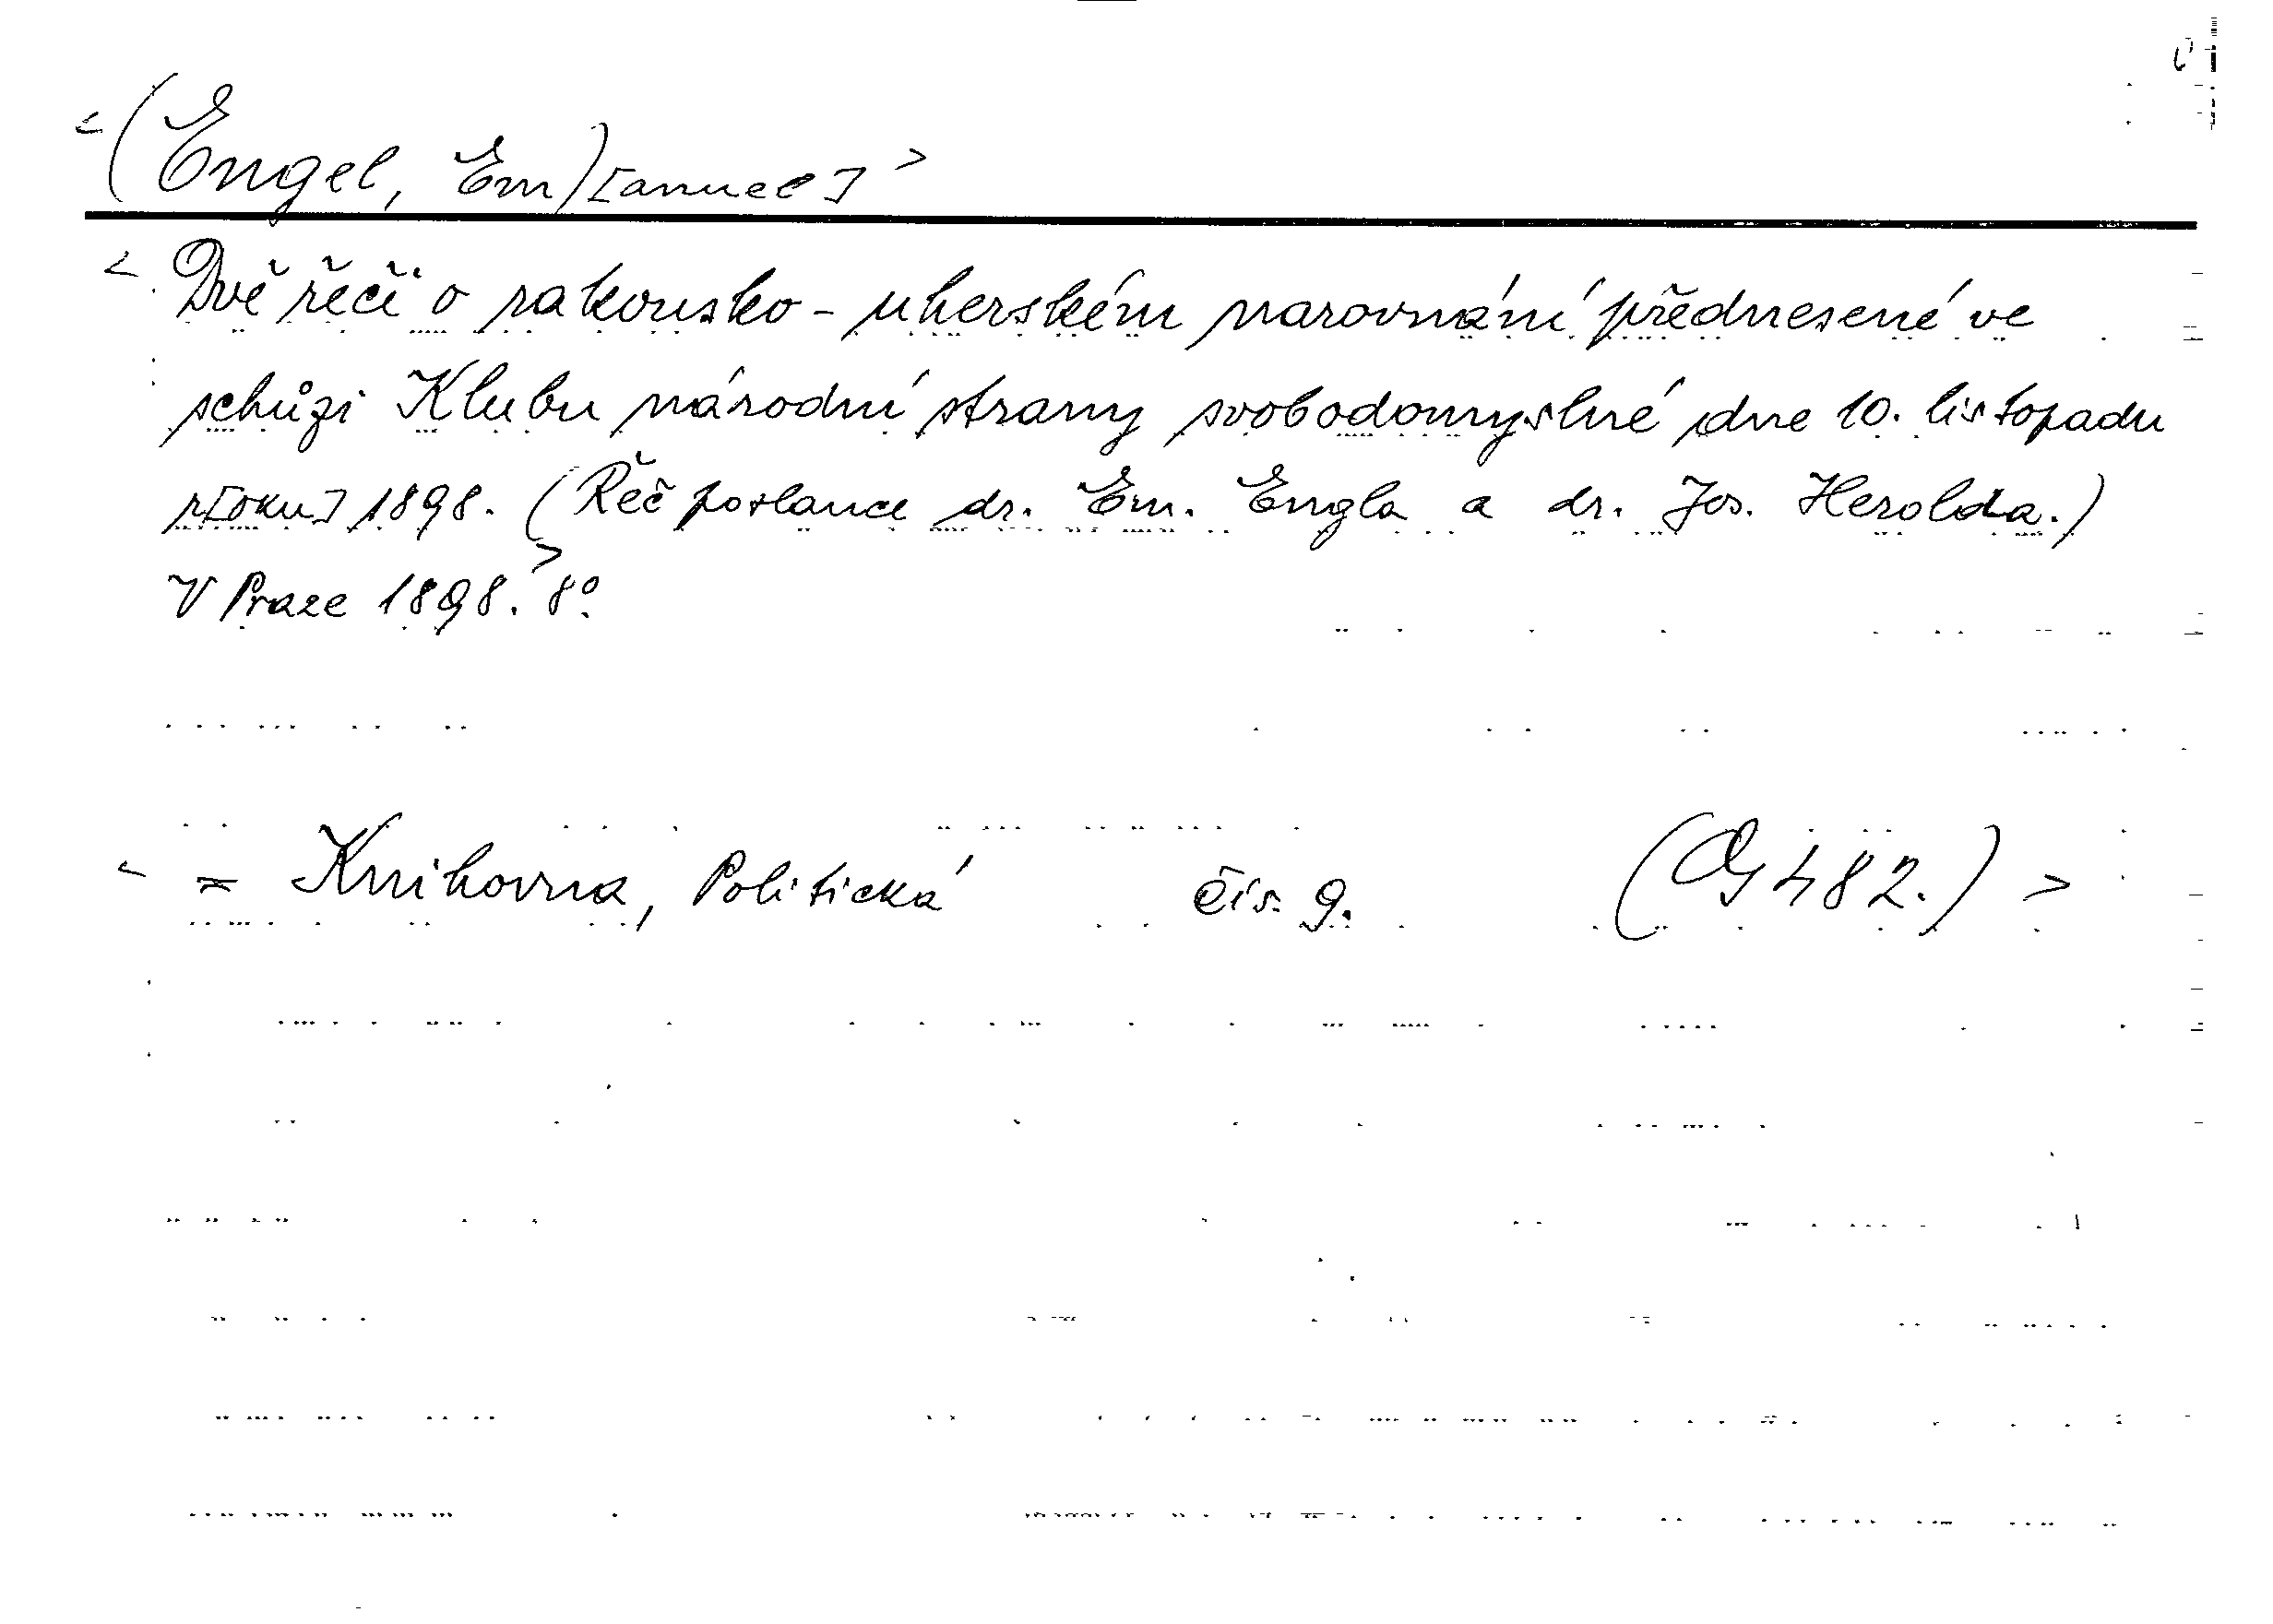 <(Engel, Em)[anuel]>
<Dvě řeči o rakousko-uherském narovnání přednesené ve
schůzi Klubu národní strany svobodomyslné dne 10. listopadu
r[oku] 1898. (Řeč poslance dr. Em. Engla a dr. Jos. Herolda.)
V Praze 1898.> 8°.
< = Knihovna, Politická čís. 9. 482.) >